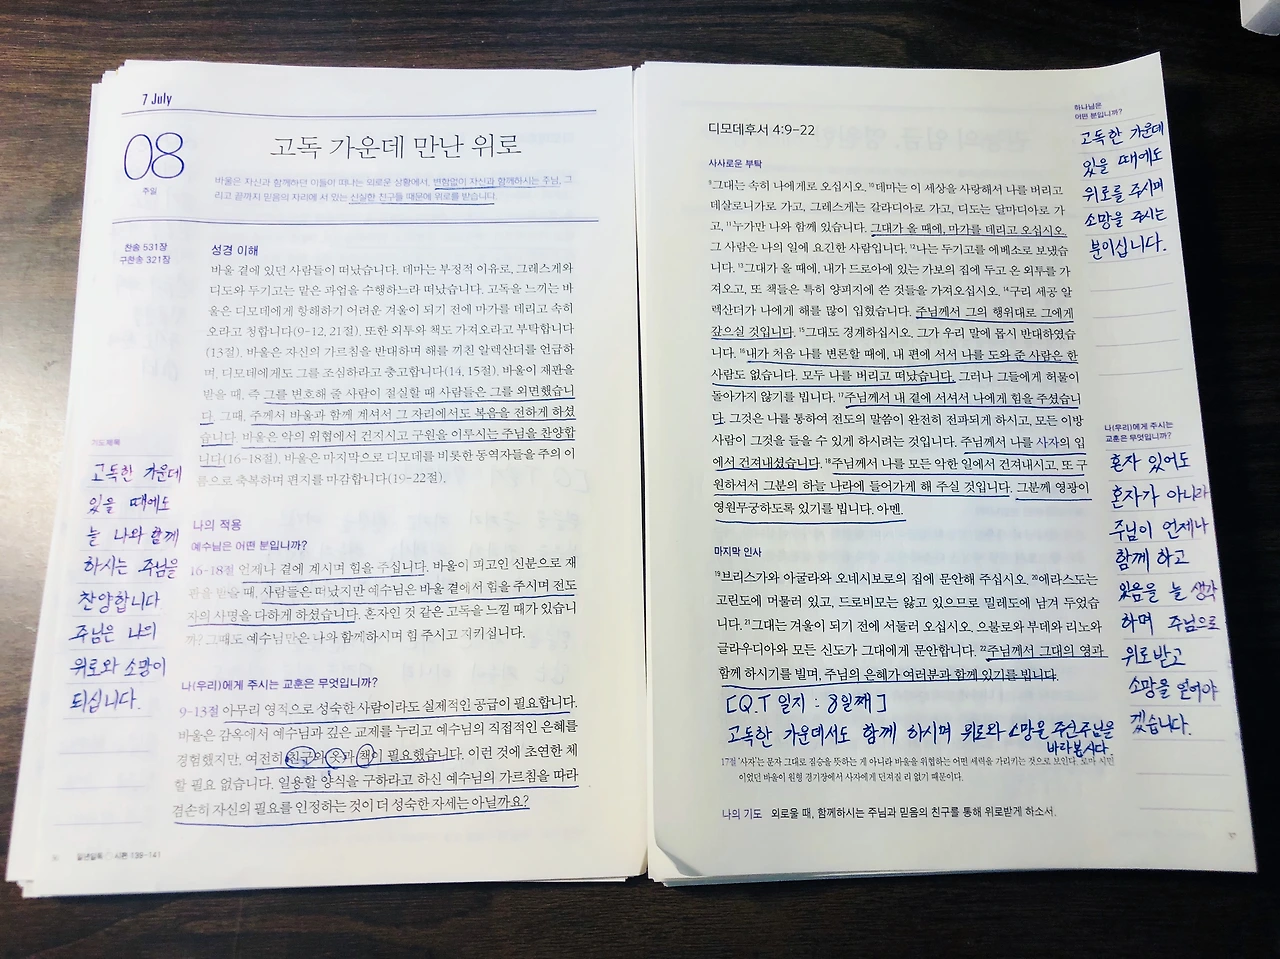 7 July
08
주일
고독 가운데 만난 위로
바울은 자신과 함께하던 이들이 떠나는 외로운 상황에서, 변함없이 자신과 함께하시는 주님, 그
리고 끝까지 믿음의 자리에 서 있는 신실한 친구들 때문에 위로를 받습니다.
찬송 531장
구찬송 321장
성경 이해
바울 곁에 있던 사람들이 떠났습니다. 데마는 부정적 이유로, 그레스게와
디도와 두기고는 맡은 과업을 수행하느라 떠났습니다. 고독을 느끼는 바
울은 디모데에게 항해하기 어려운 겨울이 되기 전에 마가를 데리고 속히
오라고 청합니다(9-12, 21절). 또한 외투와 책도 가져오라고 부탁합니다
(13절). 바울은 자신의 가르침을 반대하며 해를 끼친 알렉산더를 언급하
며, 디모데에게도 그를 조심하라고 충고합니다(14, 15절). 바울이 재판을
받을 때, 즉 그를 변호해 줄 사람이 절실할 때 사람들은 그를 외면했습니
다. 그때, 주께서 바울과 함께 계셔서 그 자리에서도 복음을 전하게 하셨
습니다. 바울은 악의 위협에서 건지시고 구원을 이루시는 주님을 찬양합
니다(16-18절). 바울은 마지막으로 디모데를 비롯한 동역자들을 주의 이
름으로 축복하며 편지를 마감합니다(19-22절).
기도제목
고독한 가운데
있을 때에도
늘 나와 함께
하시는 주님을
찬양합니다
주님은 나의
위로와 소망이
되십니다.
나의 적용
예수님은 어떤 분입니까?
16-18절 언제나 곁에 계시며 힘을 주십니다. 바울이 피고인 신분으로 재
판을 받을 때, 사람들은 떠났지만 예수님은 바울 곁에서 힘을 주시며 전도
자의 사명을 다하게 하셨습니다. 혼자인 것 같은 고독을 느낄 때가 있습니
까? 그때도 예수님만은 나와 함께하시며 힘 주시고 지키십니다.
나(우리)에게 주시는 교훈은 무엇입니까?
9-13절 아무리 영적으로 성숙한 사람이라도 실제적인 공급이 필요합니다.
바울은 감옥에서 예수님과 깊은 교제를 누리고 예수님의 직접적인 은혜를
경험했지만, 여전히 친구와 옷과 책이 필요했습니다. 이런 것에 초연한 체
할 필요 없습니다. 일용할 양식을 구하라고 하신 예수님의 가르침을 따라
겸손히 자신의 필요를 인정하는 것이 더 성숙한 자세는 아닐까요?
일년일독 시편 139-141
디모데후서 4:9-22
사사로운 부탁
9그대는 속히 나에게로 오십시오. 10데마는 이 세상을 사랑해서 나를 버리고
데살로니가로 가고, 그레스게는 갈라디아로 가고, 디도는 달마디아로 가
고, 11누가만 나와 함께 있습니다. 그대가 올 때에, 마가를 데리고 오십시오.
그 사람은 나의 일에 요긴한 사람입니다. 12나는 두기고를 에베소로 보냈습
니다. 13그대가 올 때에, 내가 드로아에 있는 가보의 집에 두고 온 외투를 가
져오고, 또 책들은 특히 양피지에 쓴 것들을 가져오십시오. 14구리 세공 알
렉산더가 나에게 해를 많이 입혔습니다. 주님께서 그의 행위대로 그에게
갚으실 것입니다. 15그대도 경계하십시오. 그가 우리 말에 몹시 반대하였습
니다. 16내가 처음 나를 변론할 때에, 내 편에 서서 나를 도와 준 사람은 한
사람도 없습니다. 모두 나를 버리고 떠났습니다. 그러나 그들에게 허물이
돌아가지 않기를 빕니다. 17주님께서 내 곁에 서서서 나에게 힘을 주셨습니
다. 그것은 나를 통하여 전도의 말씀이 완전히 전파되게 하시고, 모든 이방
사람이 그것을 들을 수 있게 하시려는 것입니다. 주님께서 나를 사자의 입
에서 건져내셨습니다. 18주님께서 나를 모든 악한 일에서 건져내시고, 또 구
원하셔서 그분의 하늘 나라에 들어가게 해 주실 것입니다. 그분께 영광이
영원무궁하도록 있기를 빕니다. 아멘.
마지막 인사
19브리스가와 아굴라와 오네시보로의 집에 문안해 주십시오. 20에라스도는
고린도에 머물러 있고, 드로비모는 앓고 있으므로 밀레도에 남겨 두었습
니다. 21그대는 겨울이 되기 전에 서둘러 오십시오. 으불로와 부데와 리노와
글라우디아와 모든 신도가 그대에게 문안합니다. 22주님께서 그대의 영과
함께 하시기를 빌며, 주님의 은혜가 여러분과 함께 있기를 빕니다.
[Q.T 일지 : 8일째]
고독한 가운데서도 함께 하시며 위로와 소망을 주신 주님을
바라봅시다.
17절 '사자'는 문자 그대로 짐승을 뜻하는 게 아니라 바울을 위협하는 어떤 세력을 가리키는 것으로 보인다. 로마 시민
이었던 바울이 원형 경기장에서 사자에게 던져질 리 없기 때문이다.
나의 기도 외로울 때, 함께하시는 주님과 믿음의 친구를 통해 위로받게 하소서.
하나님은
어떤 분입니까?
고독한 가운데
있을 때에도
위로를 주시며
소망을 주시는
분이십니다.
나(우리)에게 주시는
교훈은 무엇입니까?
혼자 있어도
혼자가 아니라
주님이 언제나
함께 하고
있음을 늘 생각
하며 주님으로
위로받고
소망을 얻어야
겠습니다.
37